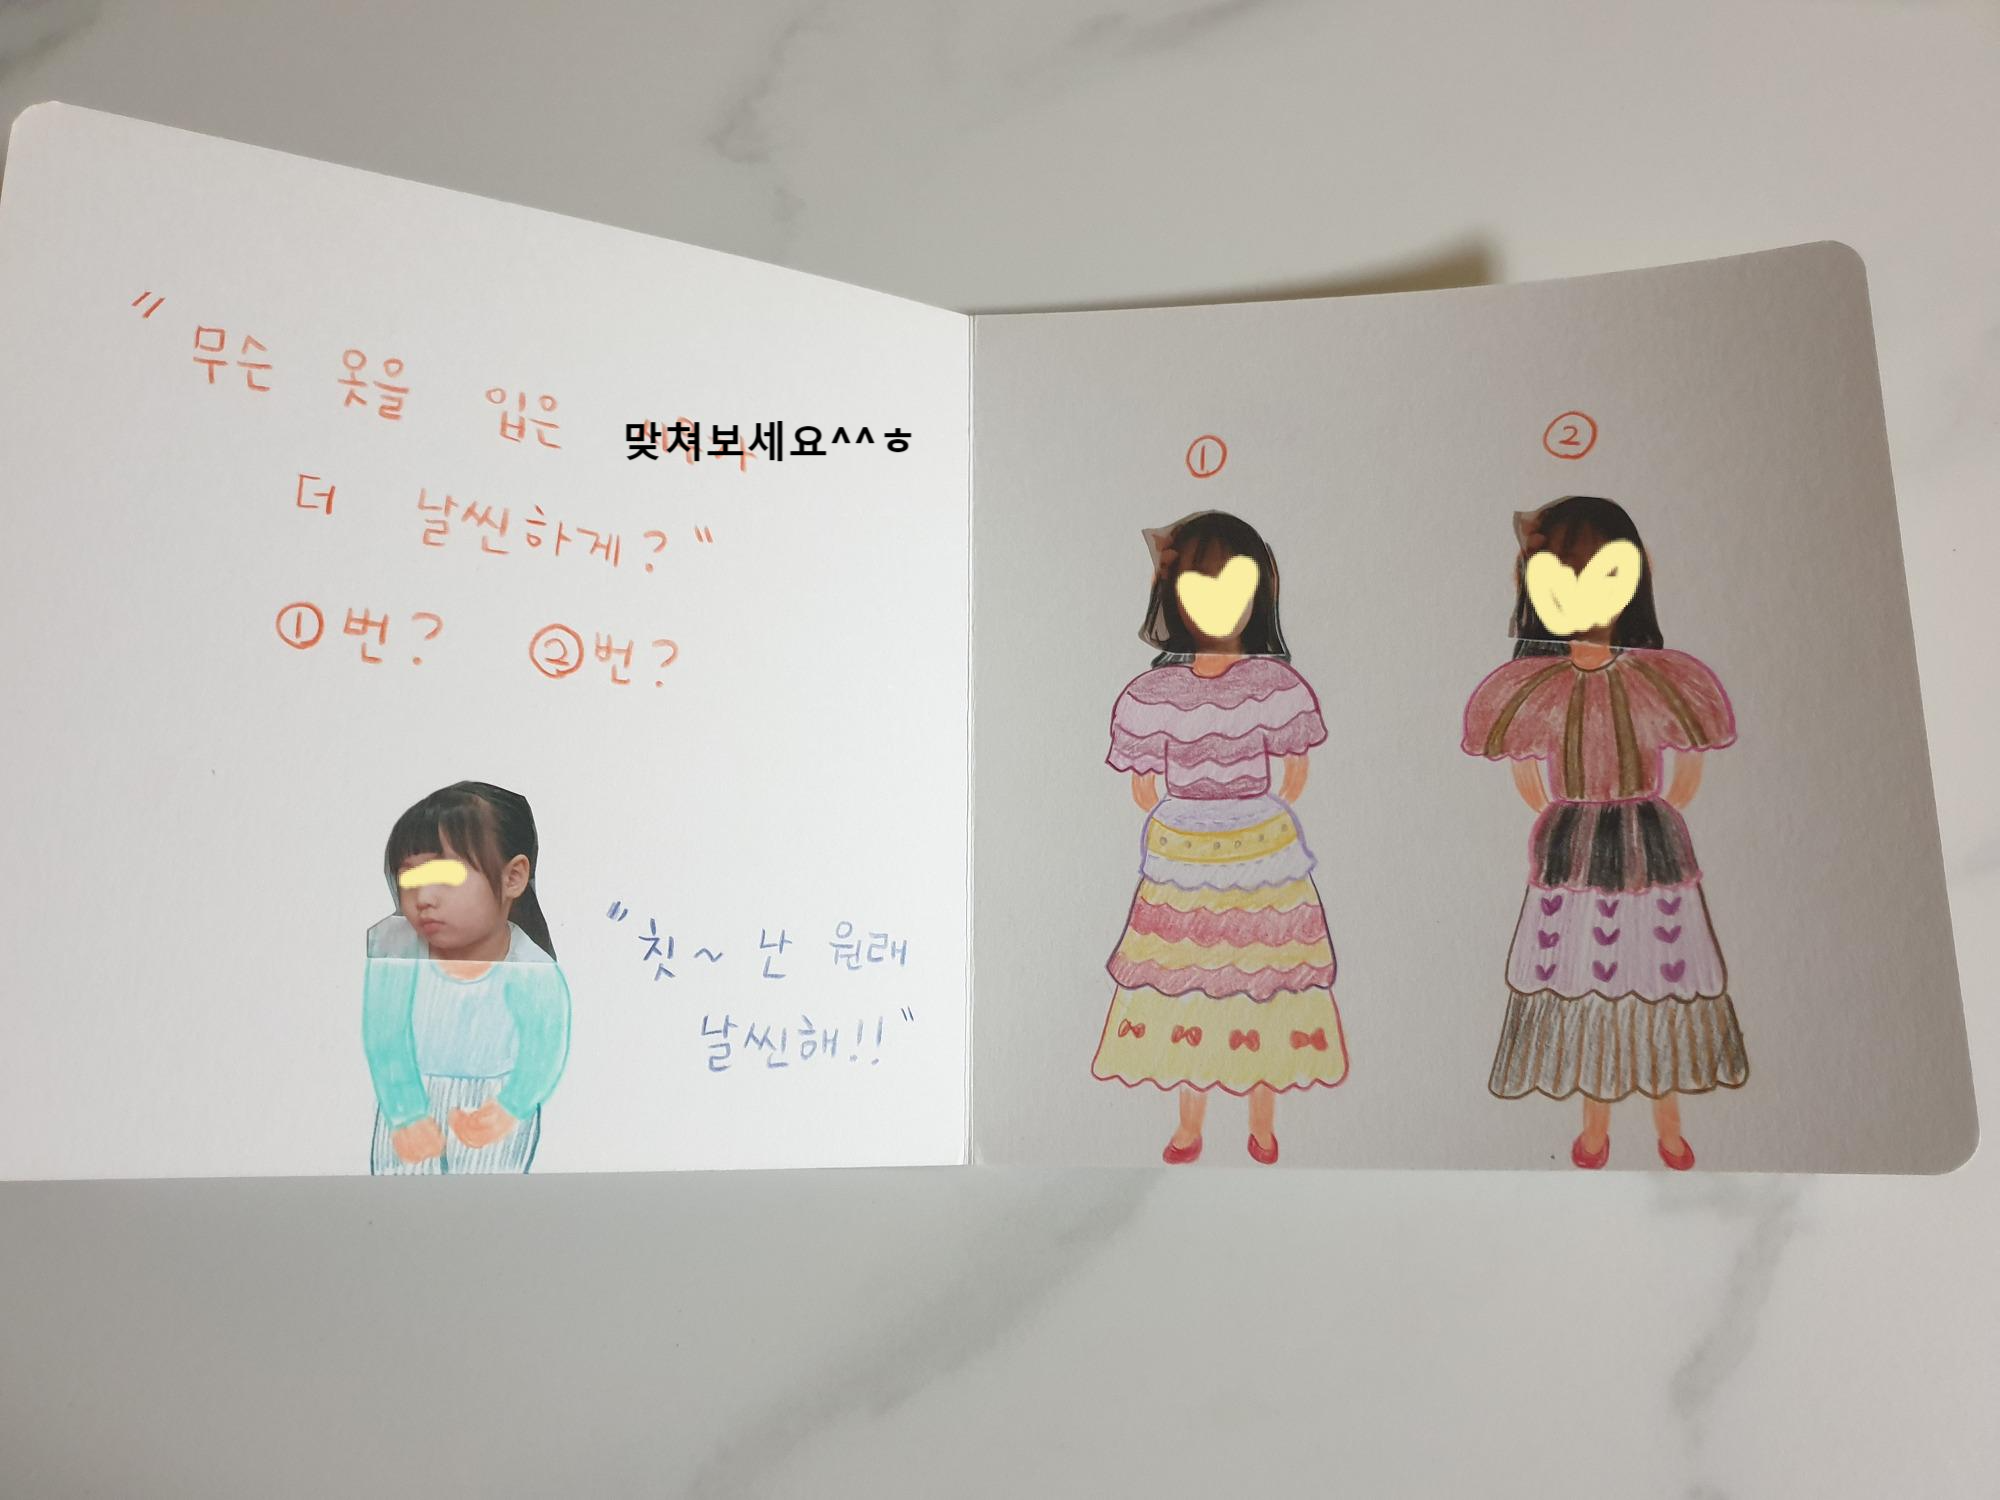 " 무슨 옷을 입은 맞쳐보세요^^ㅎ
더 날씬하게? "
①번? ②번?
" 칫~ 난 원래
날씬해!! "
① ②